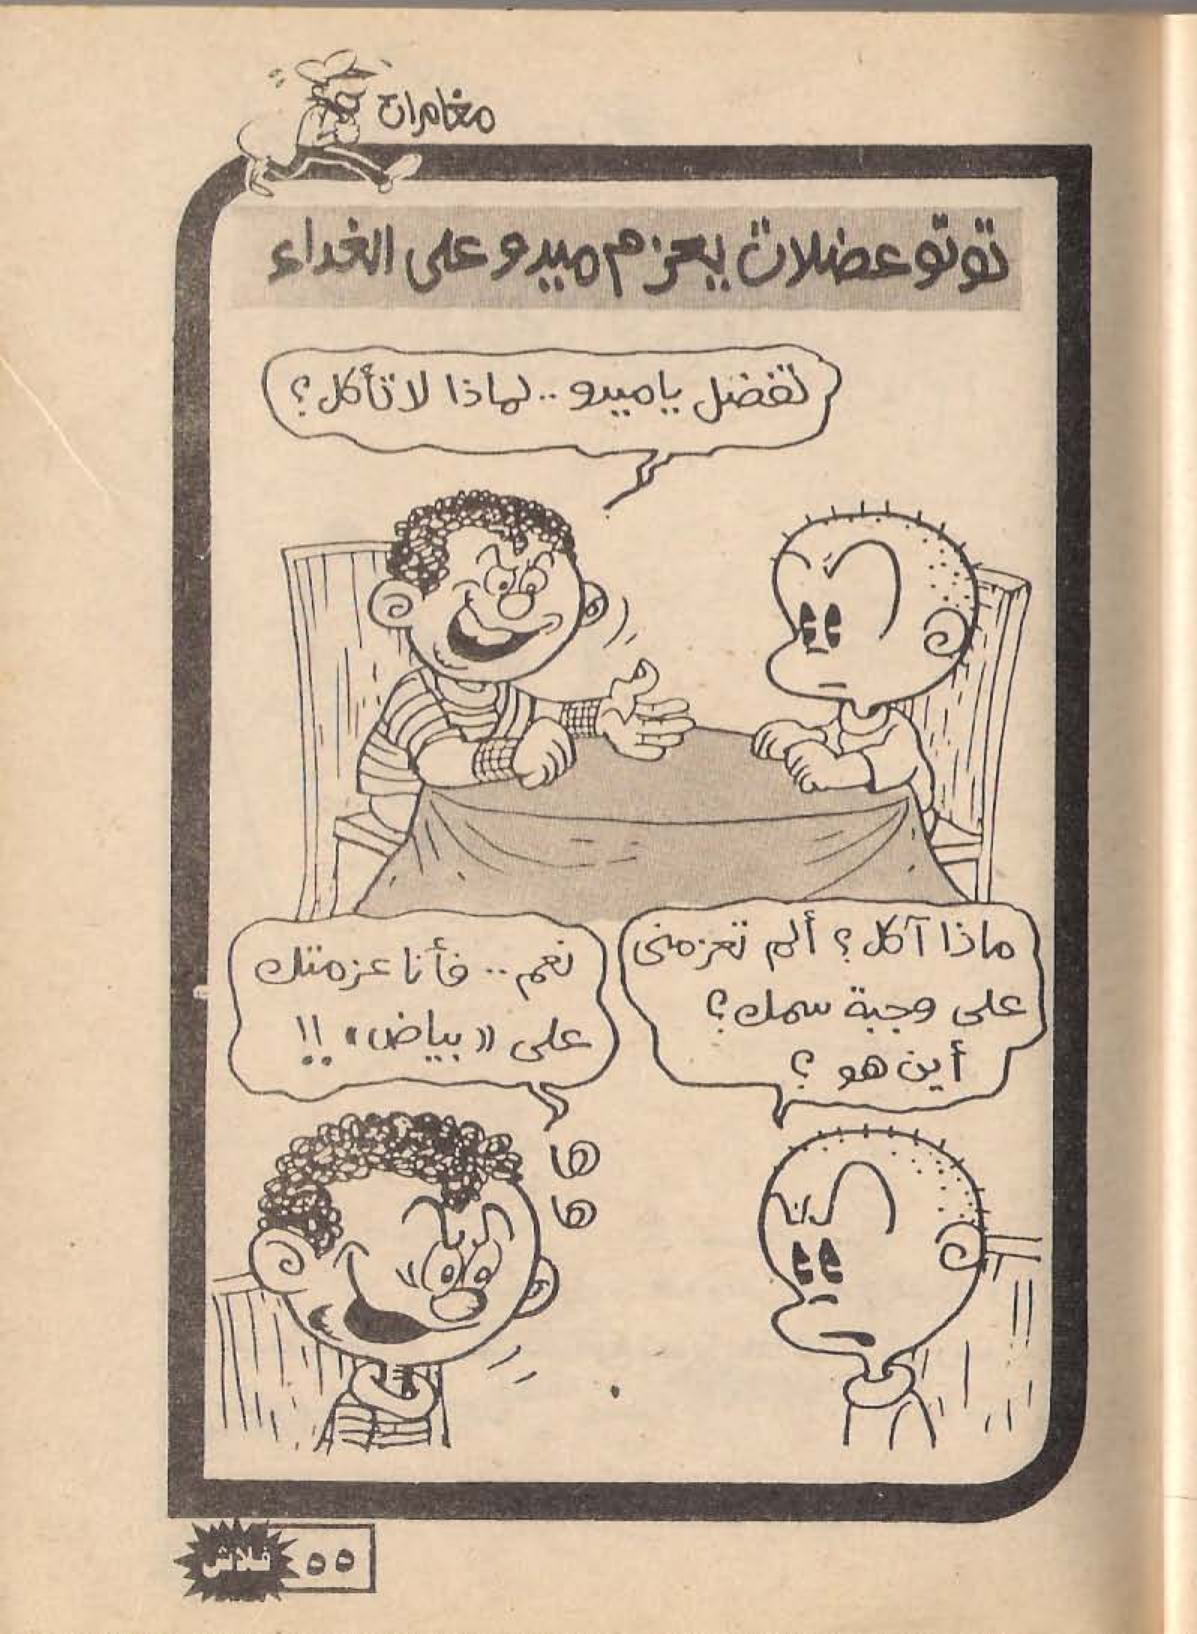 مغامرات
توتو عضلات يعزم ميدو على الغداء
تفضل ياميدو .. لماذا لا تأكل ؟
ماذا آكل ؟ ألم تعزمنى
على وجبة سمك ؟
أين هو ؟
نعم .. فأنا عزمتك
على « بياض » !!
ها
ها
فلاش
٥٥